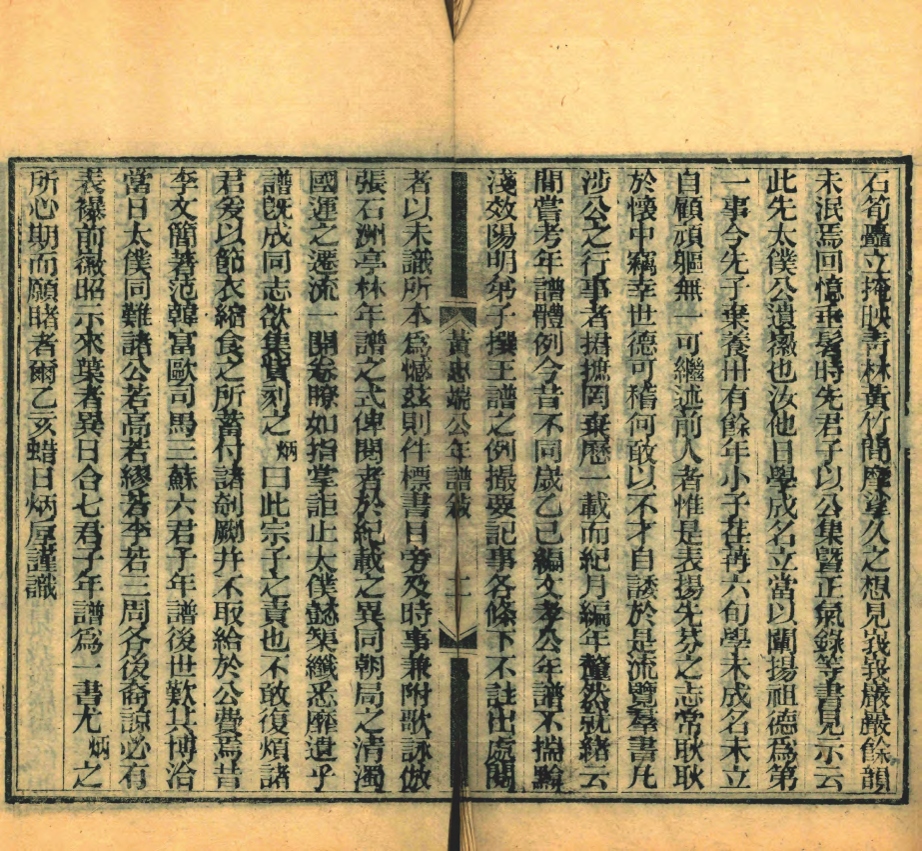 石筍矗立掩映靑林黃竹間摩挲久之想見峩峩巖巖餘韻
未泯焉回憶垂髫時先君子以公集曁正氣錄等書見示云
此先太僕公遺徽也汝他日學成名立當以闡揚祖德爲第
一事今先子棄養卅有餘年小子荏苒六旬學未成名未立
自顧頑軀無一可繼述前人者惟是表揚先芬之志常耿耿
於懷中竊幸世德可稽何敢以不才自諉於是流覽羣書凡
涉公之行事者捃摭罔棄歷一載而紀月編年蕫然就緒云
間嘗考年譜體例今昔不同歲乙巳編文孝公年譜不揣黭
淺效陽明弟子撰王譜之例撮要記事各條下不註出處閱
黃忠端公年譜敘 二
者以未識所本爲憾玆則件標書目旁及時事兼附歌詠倣
張石洲亭林年譜之式俾閱者於紀載之異同朝局之清濁
國運之遷流一開卷瞭如指掌詎止太僕懿榘纖悉靡遺乎
譜旣成同志欲集貲刻之炳曰此宗子之責也不敢復煩諸
君爰以節衣縮食之所蓄付諸剞劂幷不取給於公費焉昔
李文簡著范韓富歐司馬三蘇六君子年譜後世歎其博洽
當日太僕同難諸公若高若繆若李若三周各後裔諒必有
表襮前徽昭示來葉者異日合七君子年譜爲一書尤炳之
所心期而願睹者爾乙亥蜡日炳垕謹識